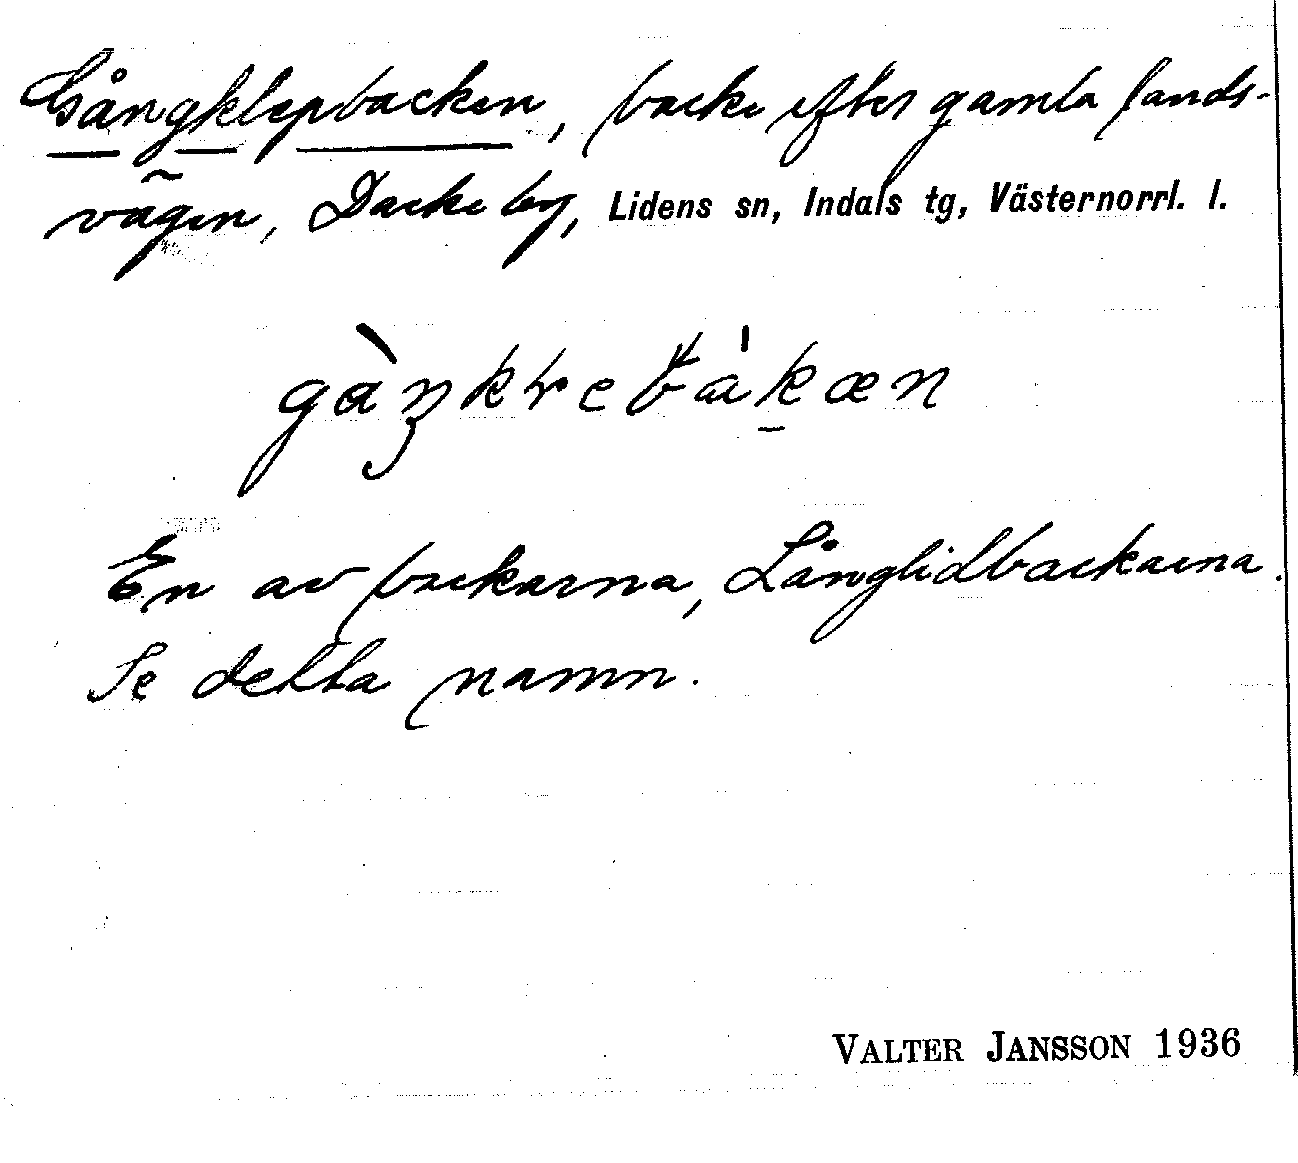 Gångklepbacken, backe efter gamla lands-
vägen, Dacke by, Lidens sn, Indals tg, Västernorrl. l.
En av backarna, Långlidbackarna.
Se detta namn.
VALTER JANSSON 1936